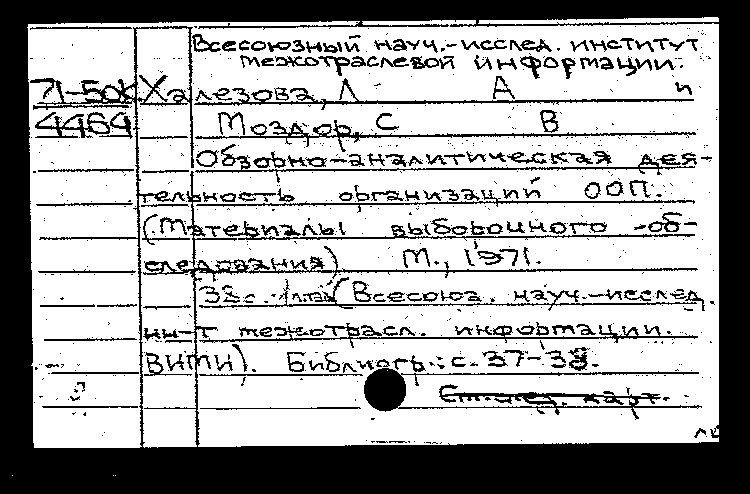 Всесоюзный науч.-исслед. институт
межотраслевой информации.
71-50К Халезова, Л А и
4464 Моздор, С В
Обзорно-аналитическая дея-
тельность организаций ООП.
(Материалы выборочного об-
следования) М., 1971.
38 с. (Всесоюз. науч.-исслед.
ин-т межотрасл. информации.
ВИМИ). Библиогр.: с. 37-38.
карт.